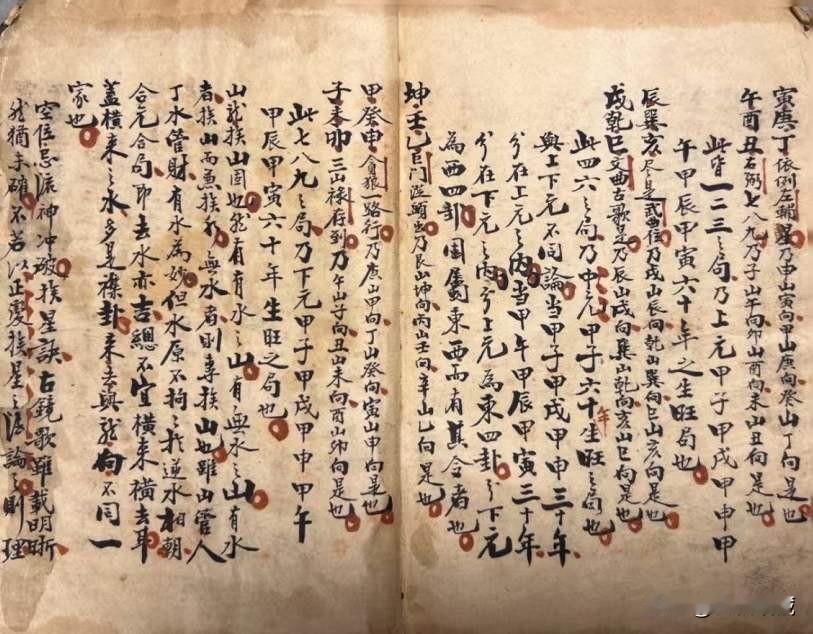 寅庚丁依例左輔星乃申山寅向甲山庚向癸山丁向是也
午酉丑右弼七八九乃子山午向卯山酉向未山丑向是也
此皆一二三之局乃上元甲子甲戌甲申甲
午甲辰甲寅六十年之生旺局也
辰巽亥尽是武曲位乃戌山辰向乾山巽向巳山亥向是也
戌乾巳文曲古歌是乃辰山戌向巽山乾向亥山巳向是也
此四六之局乃中元甲子六十年生旺之局也
與上下元不同論當甲子甲戌甲申三十年
兮在上元之內當甲午甲辰甲寅三十年
兮在下元之內兮上元為東四卦兮下元
為西四卦固屬東西而有其合者也
坤壬乙巨門從頭出乃艮山坤向丙山壬向辛山乙向是也
甲癸申貪狼一路行乃庚山甲向丁山癸向寅山申向是也
子未卯三山祿存到乃午山子向丑山未向酉山卯向是也
此七八九之局乃下元甲子甲戌甲申甲午
甲辰甲寅六十年生旺之局也
山龍挨山固也然有有水之山有無水之山有水
者挨山而兼挨水無水者則專挨山也雖山管人
丁水管財有水為妙但水原不拘之於逆水相朝
合元合局即去水亦吉總不宜橫來橫去耳
蓋橫來之水多是襍卦來去與龍向不同一
家也
空位忌流神冲破挨星訣古鏡歌雖載明晰
然猶未確不若以正變挨星之法論之則理